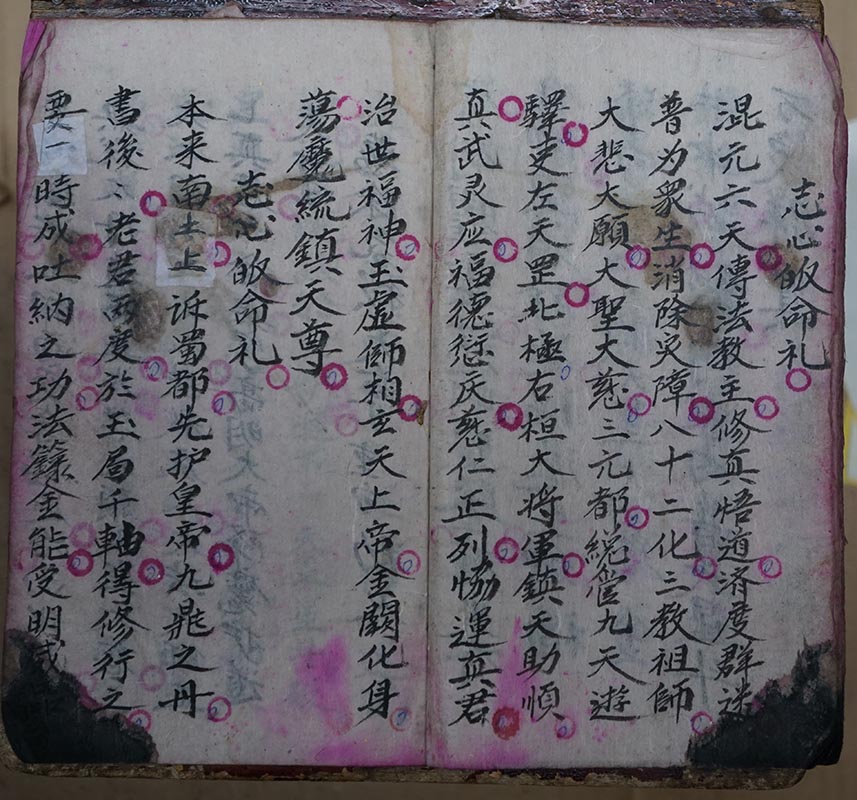 志心皈命礼
混元六天傳法教主修真悟道济度群迷
普为衆生消除災障八十二化三教祖師
大悲大願大聖大慈三元都緫管九天遊
驛吏左天罡北極右桓大將軍鎮天助順
真武灵应福德愆庆慈仁正列恊運真君
治世福神玉虚師相玄天上帝金闕化身
蕩魔統鎮天尊
志心皈命礼
本来南土上诉蜀都先护皇帝九鼎之丹
書後〻老君两度於玉局千軸得修行之
要一時成吐納之功法籙金能受明威